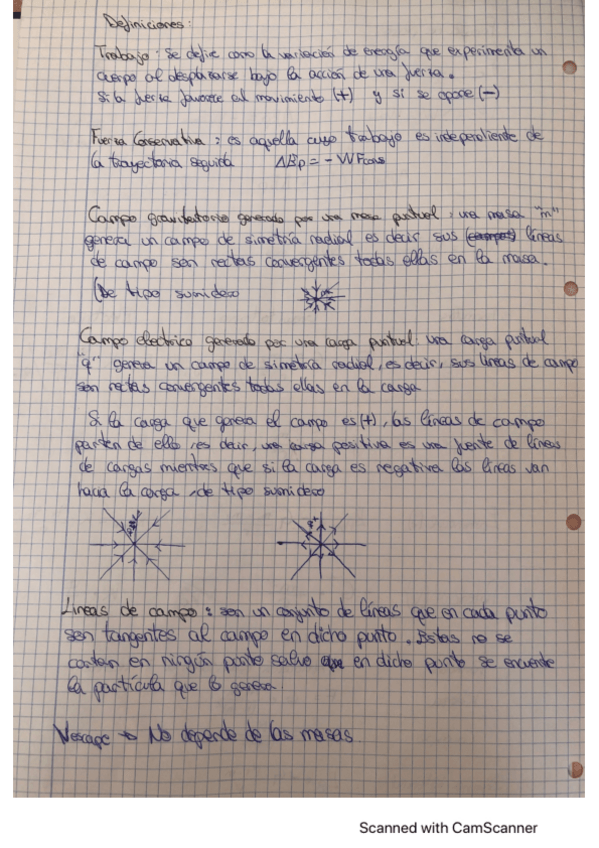 Definiciones:
Trabajo: Se define como la variación de energía que experimenta un
cuerpo al desplazarse bajo la acción de una fuerza.
Si la fuerza favorece al movimiento (+) y si se opone (-)
Fuerza Conservativa: es aquella cuyo trabajo es independiente de
la trayectoria seguida ΔEp = - WFcons
Campo gravitatorio generado por una masa puntual: una masa "m"
genera un campo de simetría radial es decir sus (campos) líneas
de campo son rectas convergentes todas ellas en la masa.
(De tipo sumidero
Campo electrico generado por una carga puntual: una carga puntual
"q" genera un campo de simetría radial, es decir, sus líneas de campo
son rectas convergentes todas ellas en la carga
Si la carga que genera el campo es (+), las líneas de campo
parten de ella, es decir, una carga positiva es una fuente de líneas
de cargas mientras que si la carga es negativa las lineas van
hacia la carga, de tipo sumidero
Lineas de campo: son un conjunto de líneas que en cada punto
son tangentes al campo en dicho punto. Estas no se
cortan en ningún punto salvo que en dicho punto se encuentre
la partícula que lo genera.
Vescape → No depende de las masas
Scanned with CamScanner